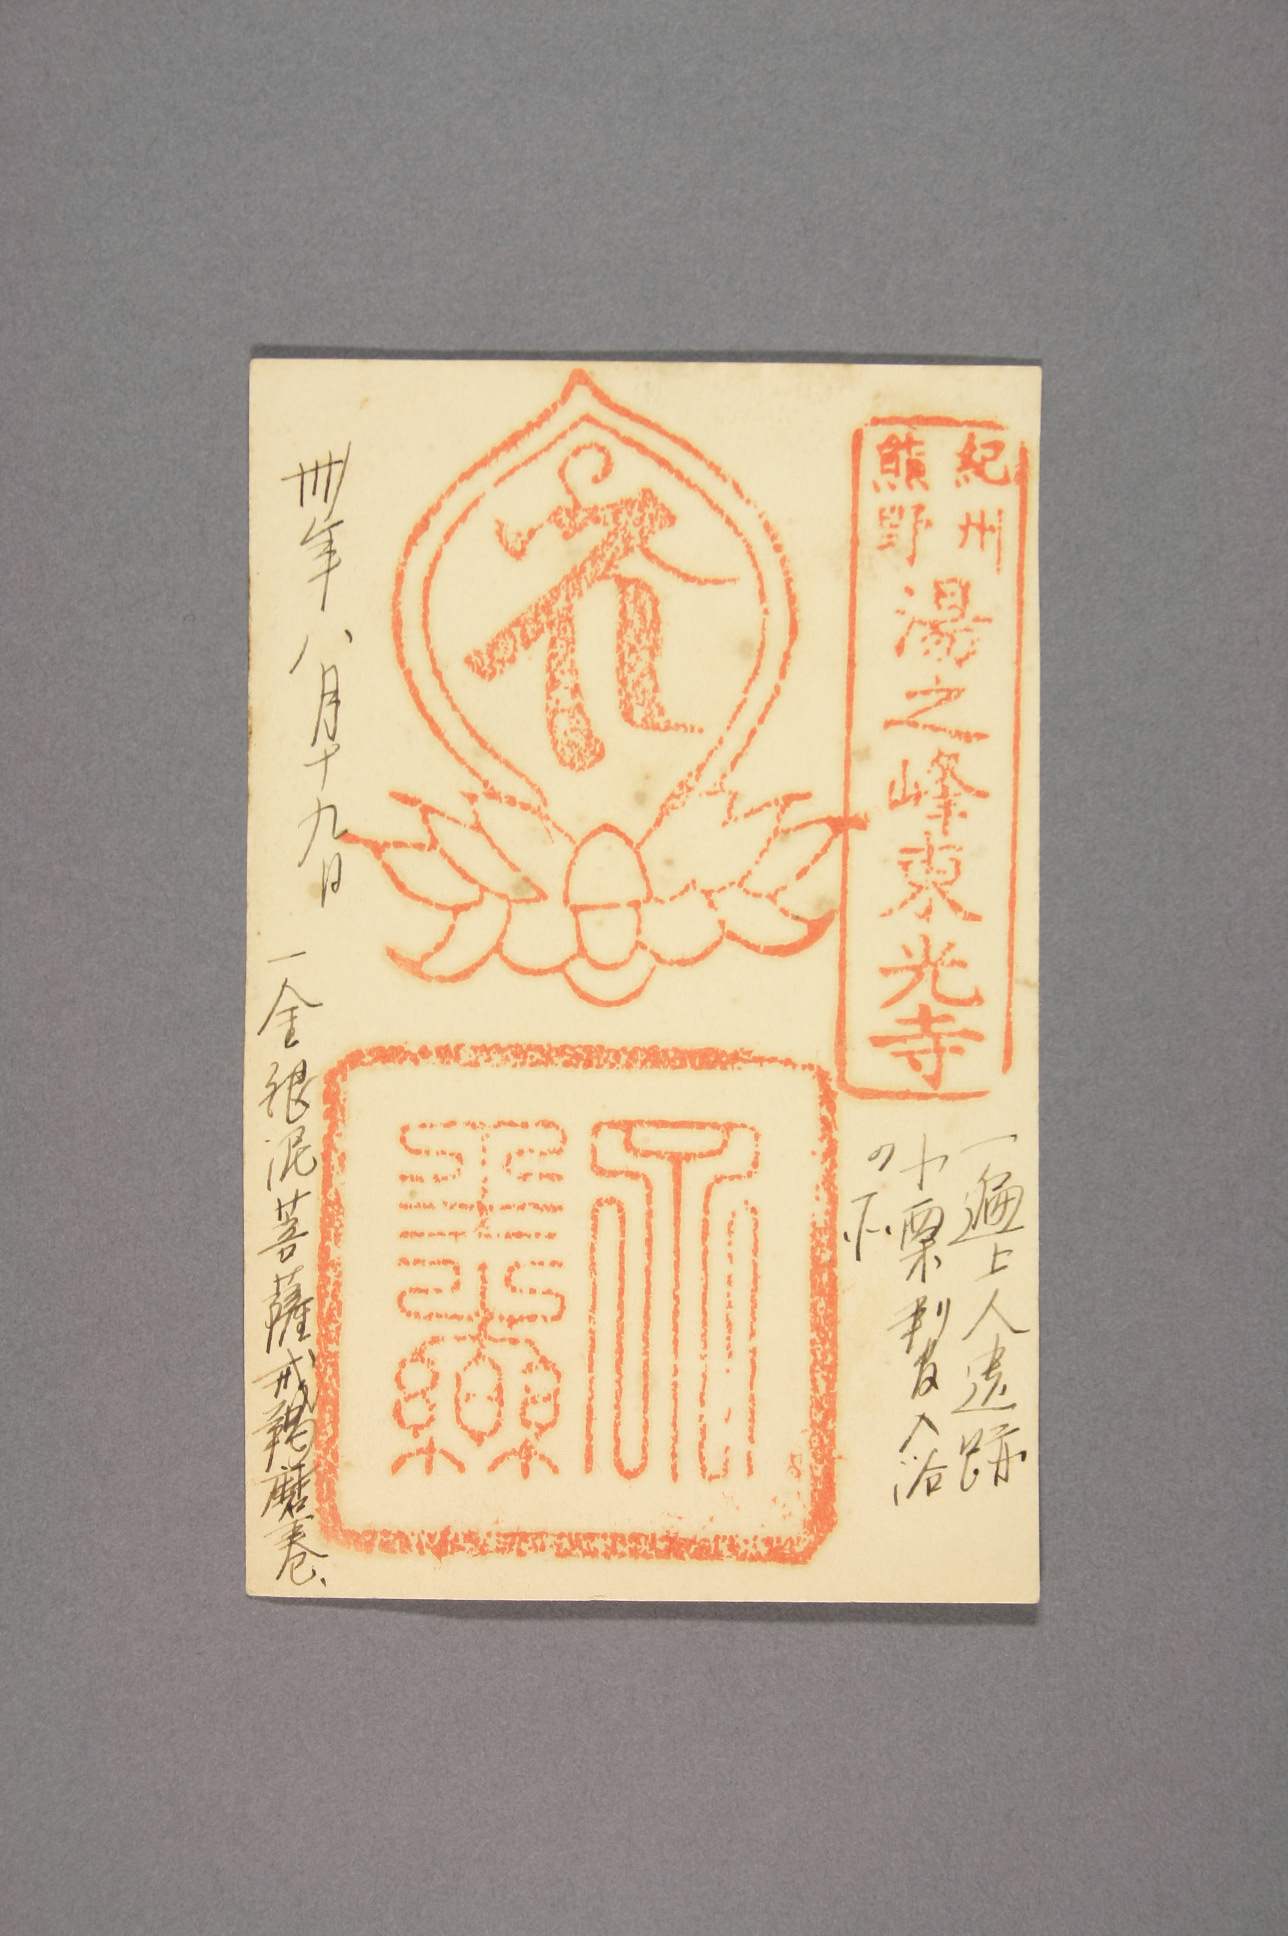 紀州
熊野
湯之峰東光寺
一遍上人遺跡
小栗判官入浴
の
卅年八月十九日
一金銀泥菩薩戒羯磨巻、